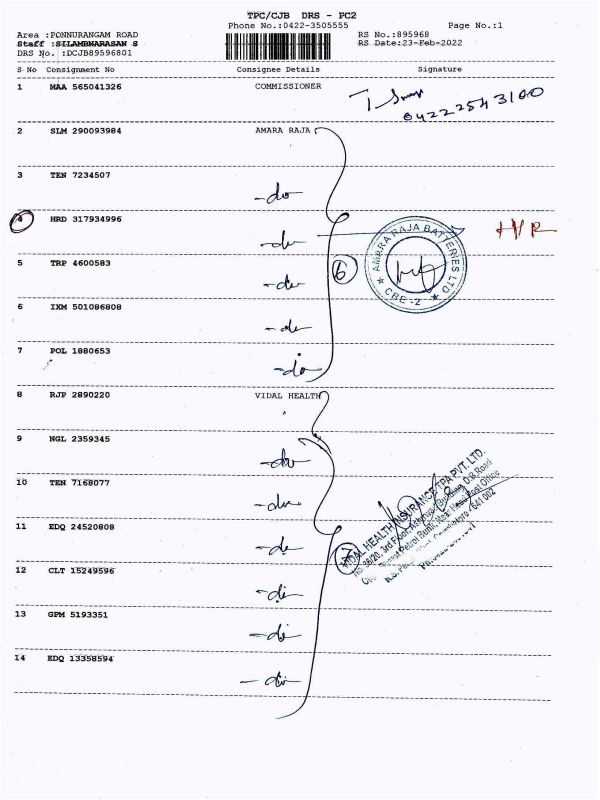 TPC/CJB DRS - PC2
Phone No.:0422-3505555 Page No.:1
Area :PONNURANGAM ROAD RS No.:895968
Staff :SILAMBNARASAN S RS Date:23-Feb-2022
DRS No. :DCJB89596801
S No Consignment No Consignee Details Signature
1 MAA 565041326 COMMISSIONER
0422 2543100
2 SLM 290093984 AMARA RAJA
3 TEN 7234507 -do
4 HRD 317934996 -do HR
AMARA RAJA BATTERIES LTD
★ CBE-2 ★
6
5 TRP 4600583 -do
6 IXM 501086808 -do
7 POL 1880653 -do
8 RJP 2890220 VIDAL HEALTH
9 NGL 2359345 -do
10 TEN 7168077 -do
11 EDQ 24520808 -do
7
VIDAL HEALTH INSURANCE TPA PVT. LTD.
12 CLT 15249596 -do
13 GPM 5193351 -do
14 EDQ 13358594 -do